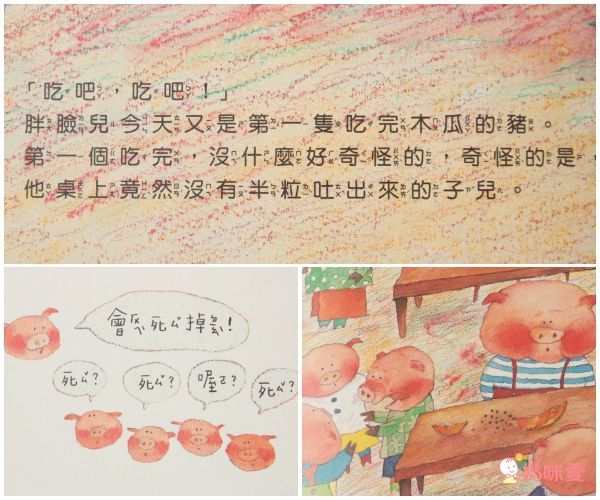 「吃吧，吃吧！」
胖臉兒今天又是第一隻吃完木瓜的豬。
第一個吃完，沒什麼好奇怪的，奇怪的是，
他桌上竟然沒有半粒吐出來的子兒。
會死掉!
死?
死?
喔?
死?
媽咪愛